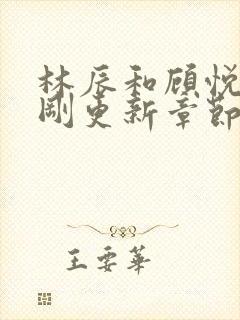 林辰和顾悦
刚更新章節
王要華